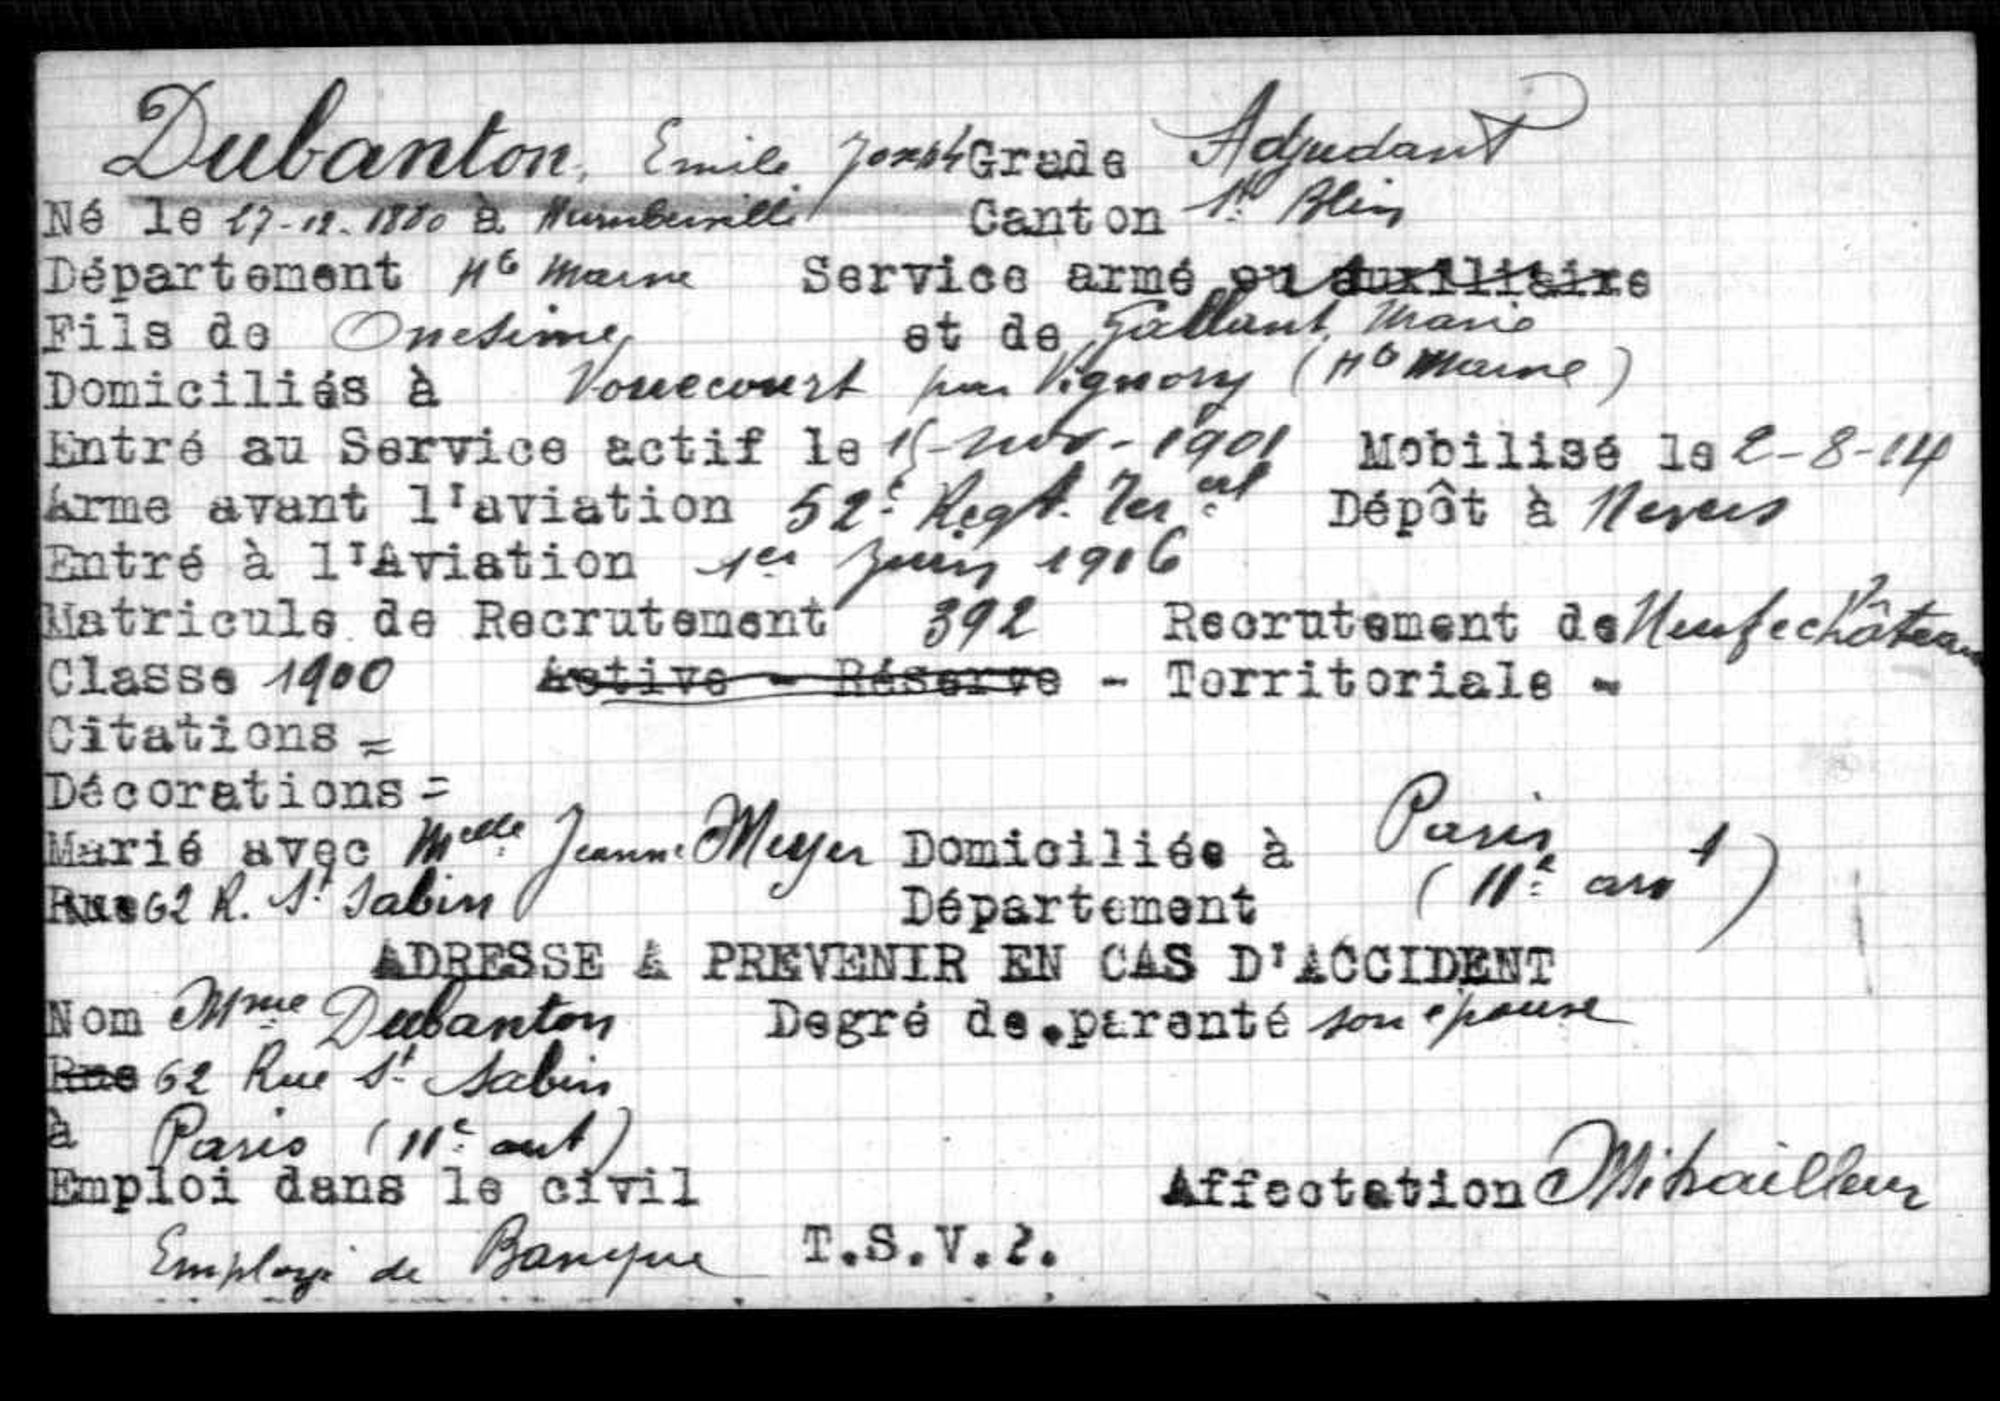 Dubanton, Emile Joseph Grade Adjudant
Né le 17-12-1880 à Canton St Blin
Département Hte Marne Service armé ou auxiliaire
Fils de Onesime et de Gallant, Marie
Domiciliés à Vouecourt par Vignory (Hte Marne)
Entré au Service actif le 15-nov-1901 Mobilisé le 2-8-14
Arme avant l'aviation 52e Regt. Ter ial Dépôt à Nevers
Entré à l'Aviation 1er Juin 1916
Matricule de Recrutement 392 Recrutement de Neufechâteau
Classe 1900 Active - Réserve - Territoriale -
Citations =
Décorations =
Marié avec Melle Jeanne Meyer Domiciliée à Paris
Rue 62 R. St Sabin Département (11e arrt)
ADRESSE A PREVENIR EN CAS D'ACCIDENT
Nom Mme Dubanton Degré de.parenté son épouse
Rue 62 Rue St Sabin
à Paris (11e arrt)
Emploi dans le civil Affectation Mitrailleur
Employé de Banque T.S.V.P.